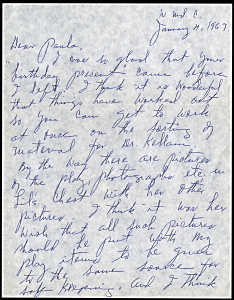 January 11, 1967
Dear Paula,
I was so glad that your
birthday present came before
I left. I think it is wonderful
that things have worked out
so you can get to work
at once on the sorting of
material for Dr. Kellam
By the way there are pictures
of the play photographs etc. in
chest with her other
pictures. I think it was her
wish that all such pictures
should be put with my
play items to be given
to the same source for
safe keeping. And I think